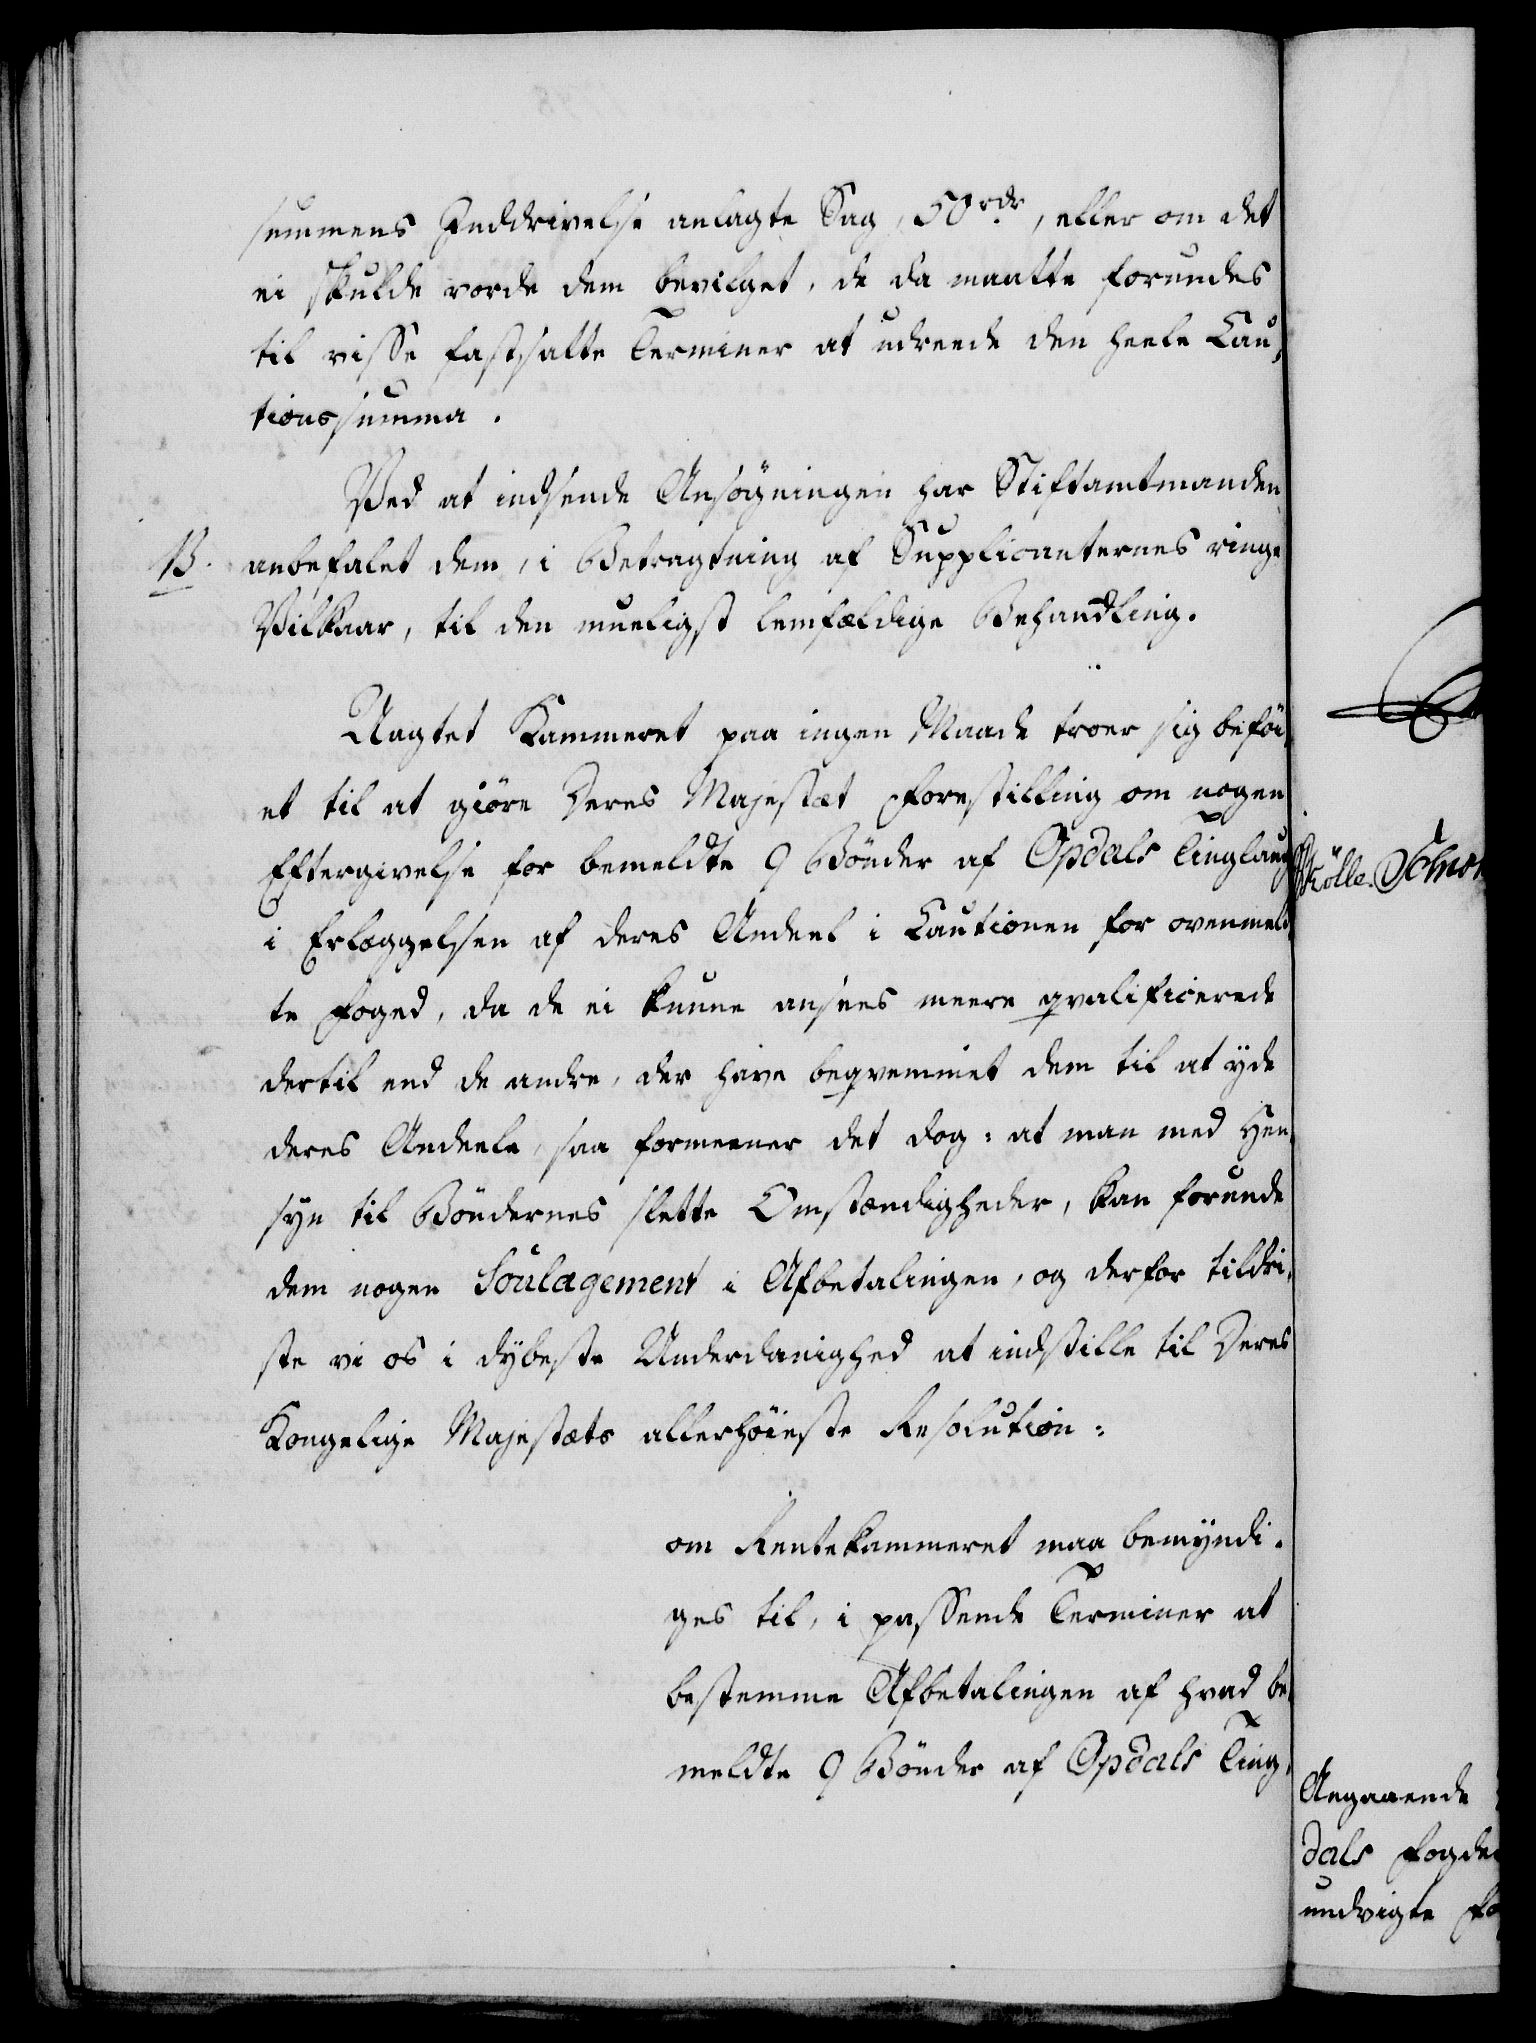 summens Inddrivelse anlagte Sag, 50 rdr, eller om det
ei skulde vorde dem bevilget, de da maatte forundes
til visse fastsatte Terminer at udreede den heele Cau,
tionssumma.
Ved at indsende Ansøgningen har Stiftamtmanden
B. anbefalet dem, i Betragtning af Supplicanternes ringe
Vilkaar, til den mueligst lemfældige Behandling.
Uagtet Kammeret paa ingen Maade troer sig beføi,
et til at giöre Deres Majestæt Forestilling om nogen
Eftergivelse for bemeldte 9 Bönder af Opdals Tinglaug
i Erlæggelsen af deres Andeel i Cautionen for ovenmeld,
te Foged, da de ei kunne ansees meere qvalificerede
dertil end de andre, der have beqvemmet dem til at yde
deres Andeele, saa formeener det dog: at man med Hen,
syn til Böndernes slette Omstændigheder, kan forunde
dem nogen Soulagement i Afbetalingen, og derfor tildri,
ste vi os i dybeste Underdanighed at indstille til Deres
Kongelige Majestæts allerhöieste Resolution:
om Rentekammeret maa bemyndi,
ges til, i passende Terminer at
bestemme Afbetalingen af hvad be,
meldte 9 Bönder af Opdals Ting,
Angaaende
dals Fogde
undvigte